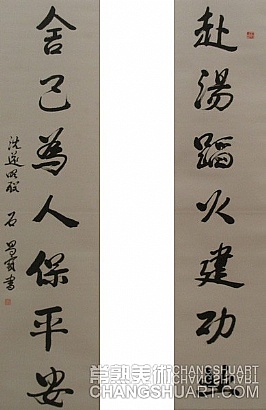 赴湯蹈火建功
舍己為人保平安
常熟美術 CHANGSHUART
CHANGSHUART.COM